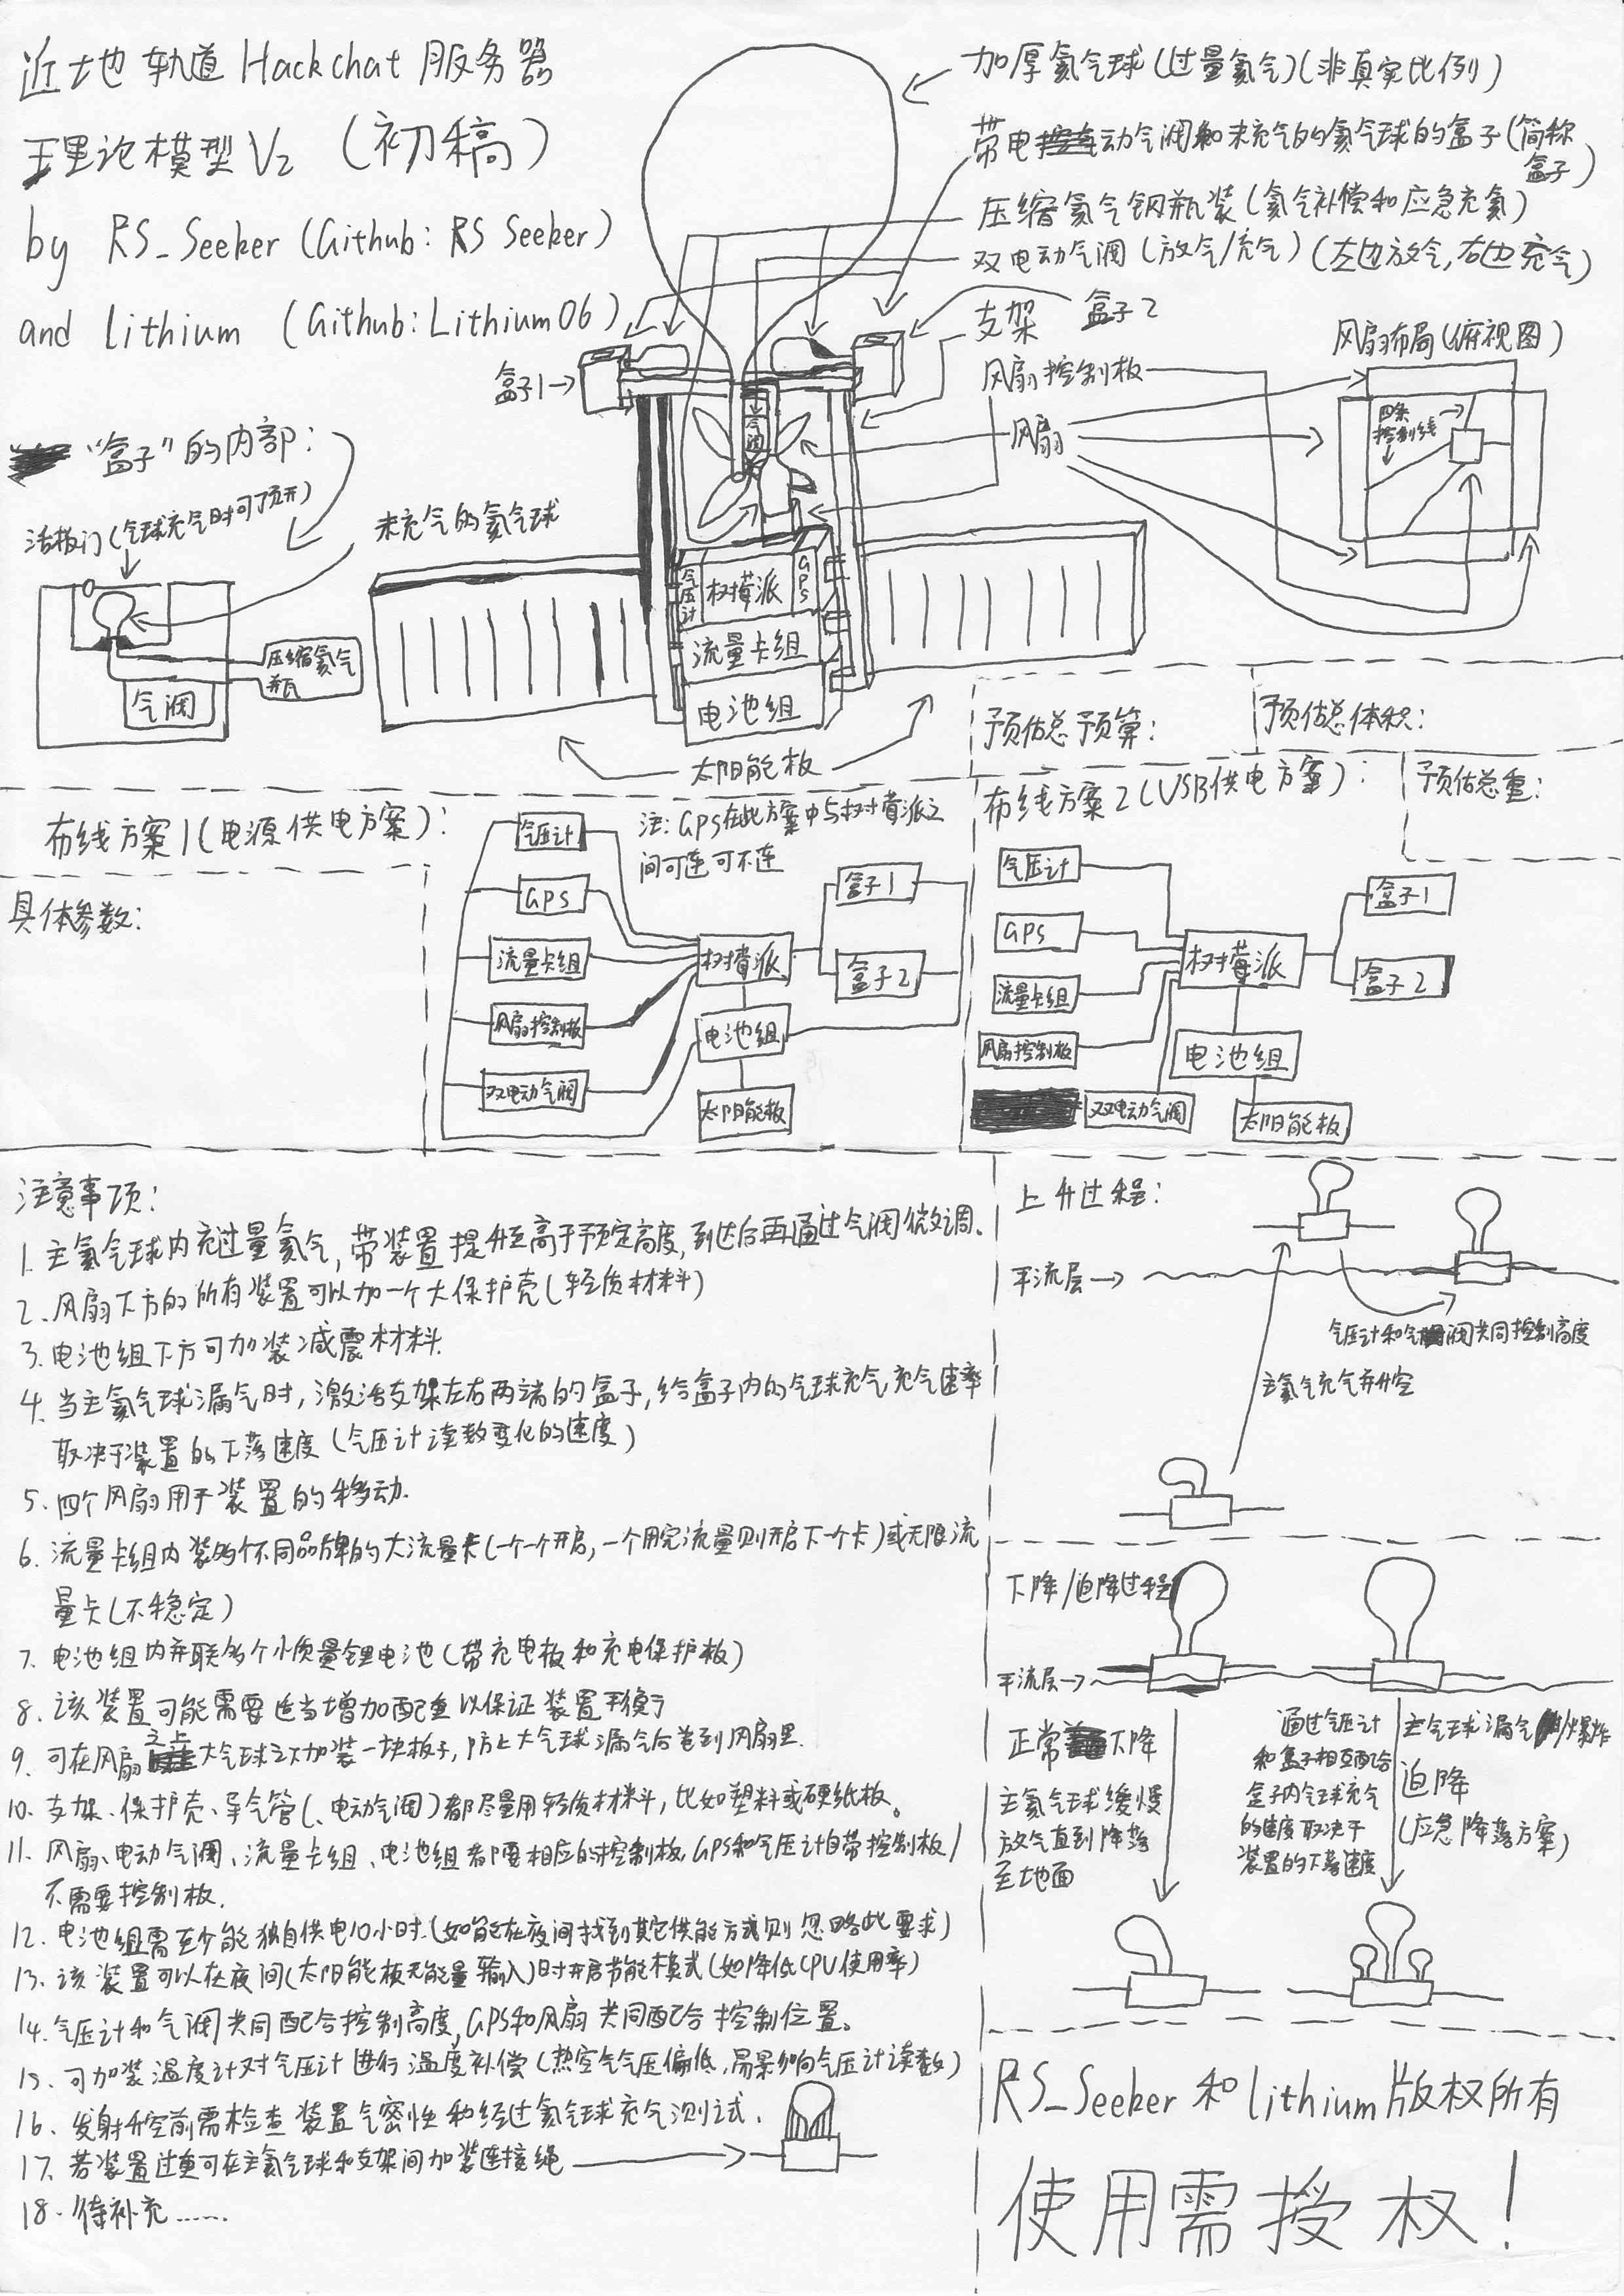 近地轨道Hackchat服务器
理论模型V2（初稿）
by RS_Seeker (Github: RS Seeker)
and lithium (Github: Lithium06)
加厚氦气球(过量氦气)(非真实比例)
带电动气阀和未充气的氦气球的盒子(简称
盒子)
压缩氦气钢瓶装(氦气补偿和应急充氦)
双电动气阀(放气/充气)(左边放气,右边充气)
支架
盒子2
盒子1→
风扇控制板
风扇
气阀
风扇布局(俯视图)
四条
控制线
"盒子"的内部:
活板门(气球充气时可顶开)
未充气的氦气球
压缩氦气
瓶
气阀
气压计
树莓派
GPS
流量卡组
电池组
太阳能板
预估总预算:
预估总体积:
预估总重:
布线方案1(电源供电方案):
注:GPS在此方案中与树莓派之
间可连可不连
气压计
GPS
流量卡组
风扇控制板
双电动气阀
树莓派
电池组
太阳能板
盒子1
盒子2
布线方案2(USB供电方案):
气压计
GPS
流量卡组
风扇控制板
双电动气阀
树莓派
电池组
太阳能板
盒子1
盒子2
具体参数:
注意事项:
1.主氦气球内充过量氦气,带装置提升至高于预定高度,到达后再通过气阀微调.
2.风扇下方的所有装置可以加一个大保护壳(轻质材料)
3.电池组下方可加装减震材料.
4.当主氦气球漏气时,激活支架左右两端的盒子,给盒子内的气球充气,充气速率
取决于装置的下落速度(气压计读数变化的速度)
5.四个风扇用于装置的移动.
6.流量卡组内装多个不同品牌的大流量卡(一个一个开启,一个用完流量则开启下一个卡)或无限流
量卡(不稳定)
7.电池组内并联多个小质量锂电池(带充电板和充电保护板)
8.该装置可能需要适当增加配重以保证装置平衡
9.可在风扇之上大气球之下加装一块板子,防止大气球漏气后卷到风扇里.
10.支架、保护壳、导气管(、电动气阀)都尽量用轻质材料,比如塑料或硬纸板。
11.风扇、电动气阀、流量卡组、电池组都要相应的控制板,GPS和气压计自带控制板/
不需要控制板.
12.电池组需至少能独自供电10小时.(如能在夜间找到其它供能方式则忽略此要求)
13.该装置可以在夜间(太阳能板无能量输入)时开启节能模式(如降低CPU使用率)
14.气压计和气阀共同配合控制高度,GPS和风扇共同配合控制位置。
15.可加装温度计对气压计进行温度补偿(热空气气压偏低,易影响气压计读数)
16.发射升空前需检查装置气密性和经过氦气球充气测试.
17.若装置过重可在主氦气球和支架间加装连接绳
18.待补充......
上升过程:
平流层→
气压计和气阀共同控制高度
主氦气充气并升空
下降/迫降过程
平流层→
正常下降
主氦气球缓慢
放气直到降落
至地面
通过气压计
和盒子相互配合
盒子内气球充气
的速度取决于
装置的下落速度
主气球漏气/爆炸
迫降
(应急降落方案)
RS_Seeker和lithium版权所有
使用需授权!